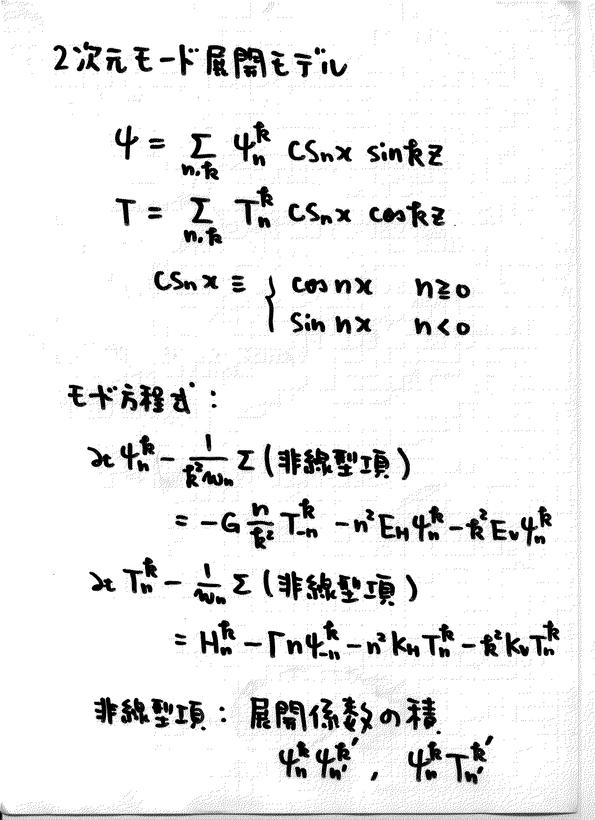 2次元モード展開モデル
ψ = Σ_{n,k} ψ_n^k csₙx sin kz
T = Σ_{n,k} T_n^k csₙx cos kz
csₙx ≡ { cos nx n≧0
sin nx n<0
モード方程式:
∂t ψ_n^k − 1/(k²wₙ) Σ(非線型項)
= −G n/k² T_{-n}^k − n²E_H ψ_n^k − k²E_V ψ_n^k
∂t T_n^k − 1/wₙ Σ(非線型項)
= H_n^k − Γn ψ_{-n}^k − n²K_H T_n^k − k²K_V T_n^k
非線型項: 展開係数の積
ψ_n^k ψ_{n'}^{k'} , ψ_n^k T_{n'}^{k'}